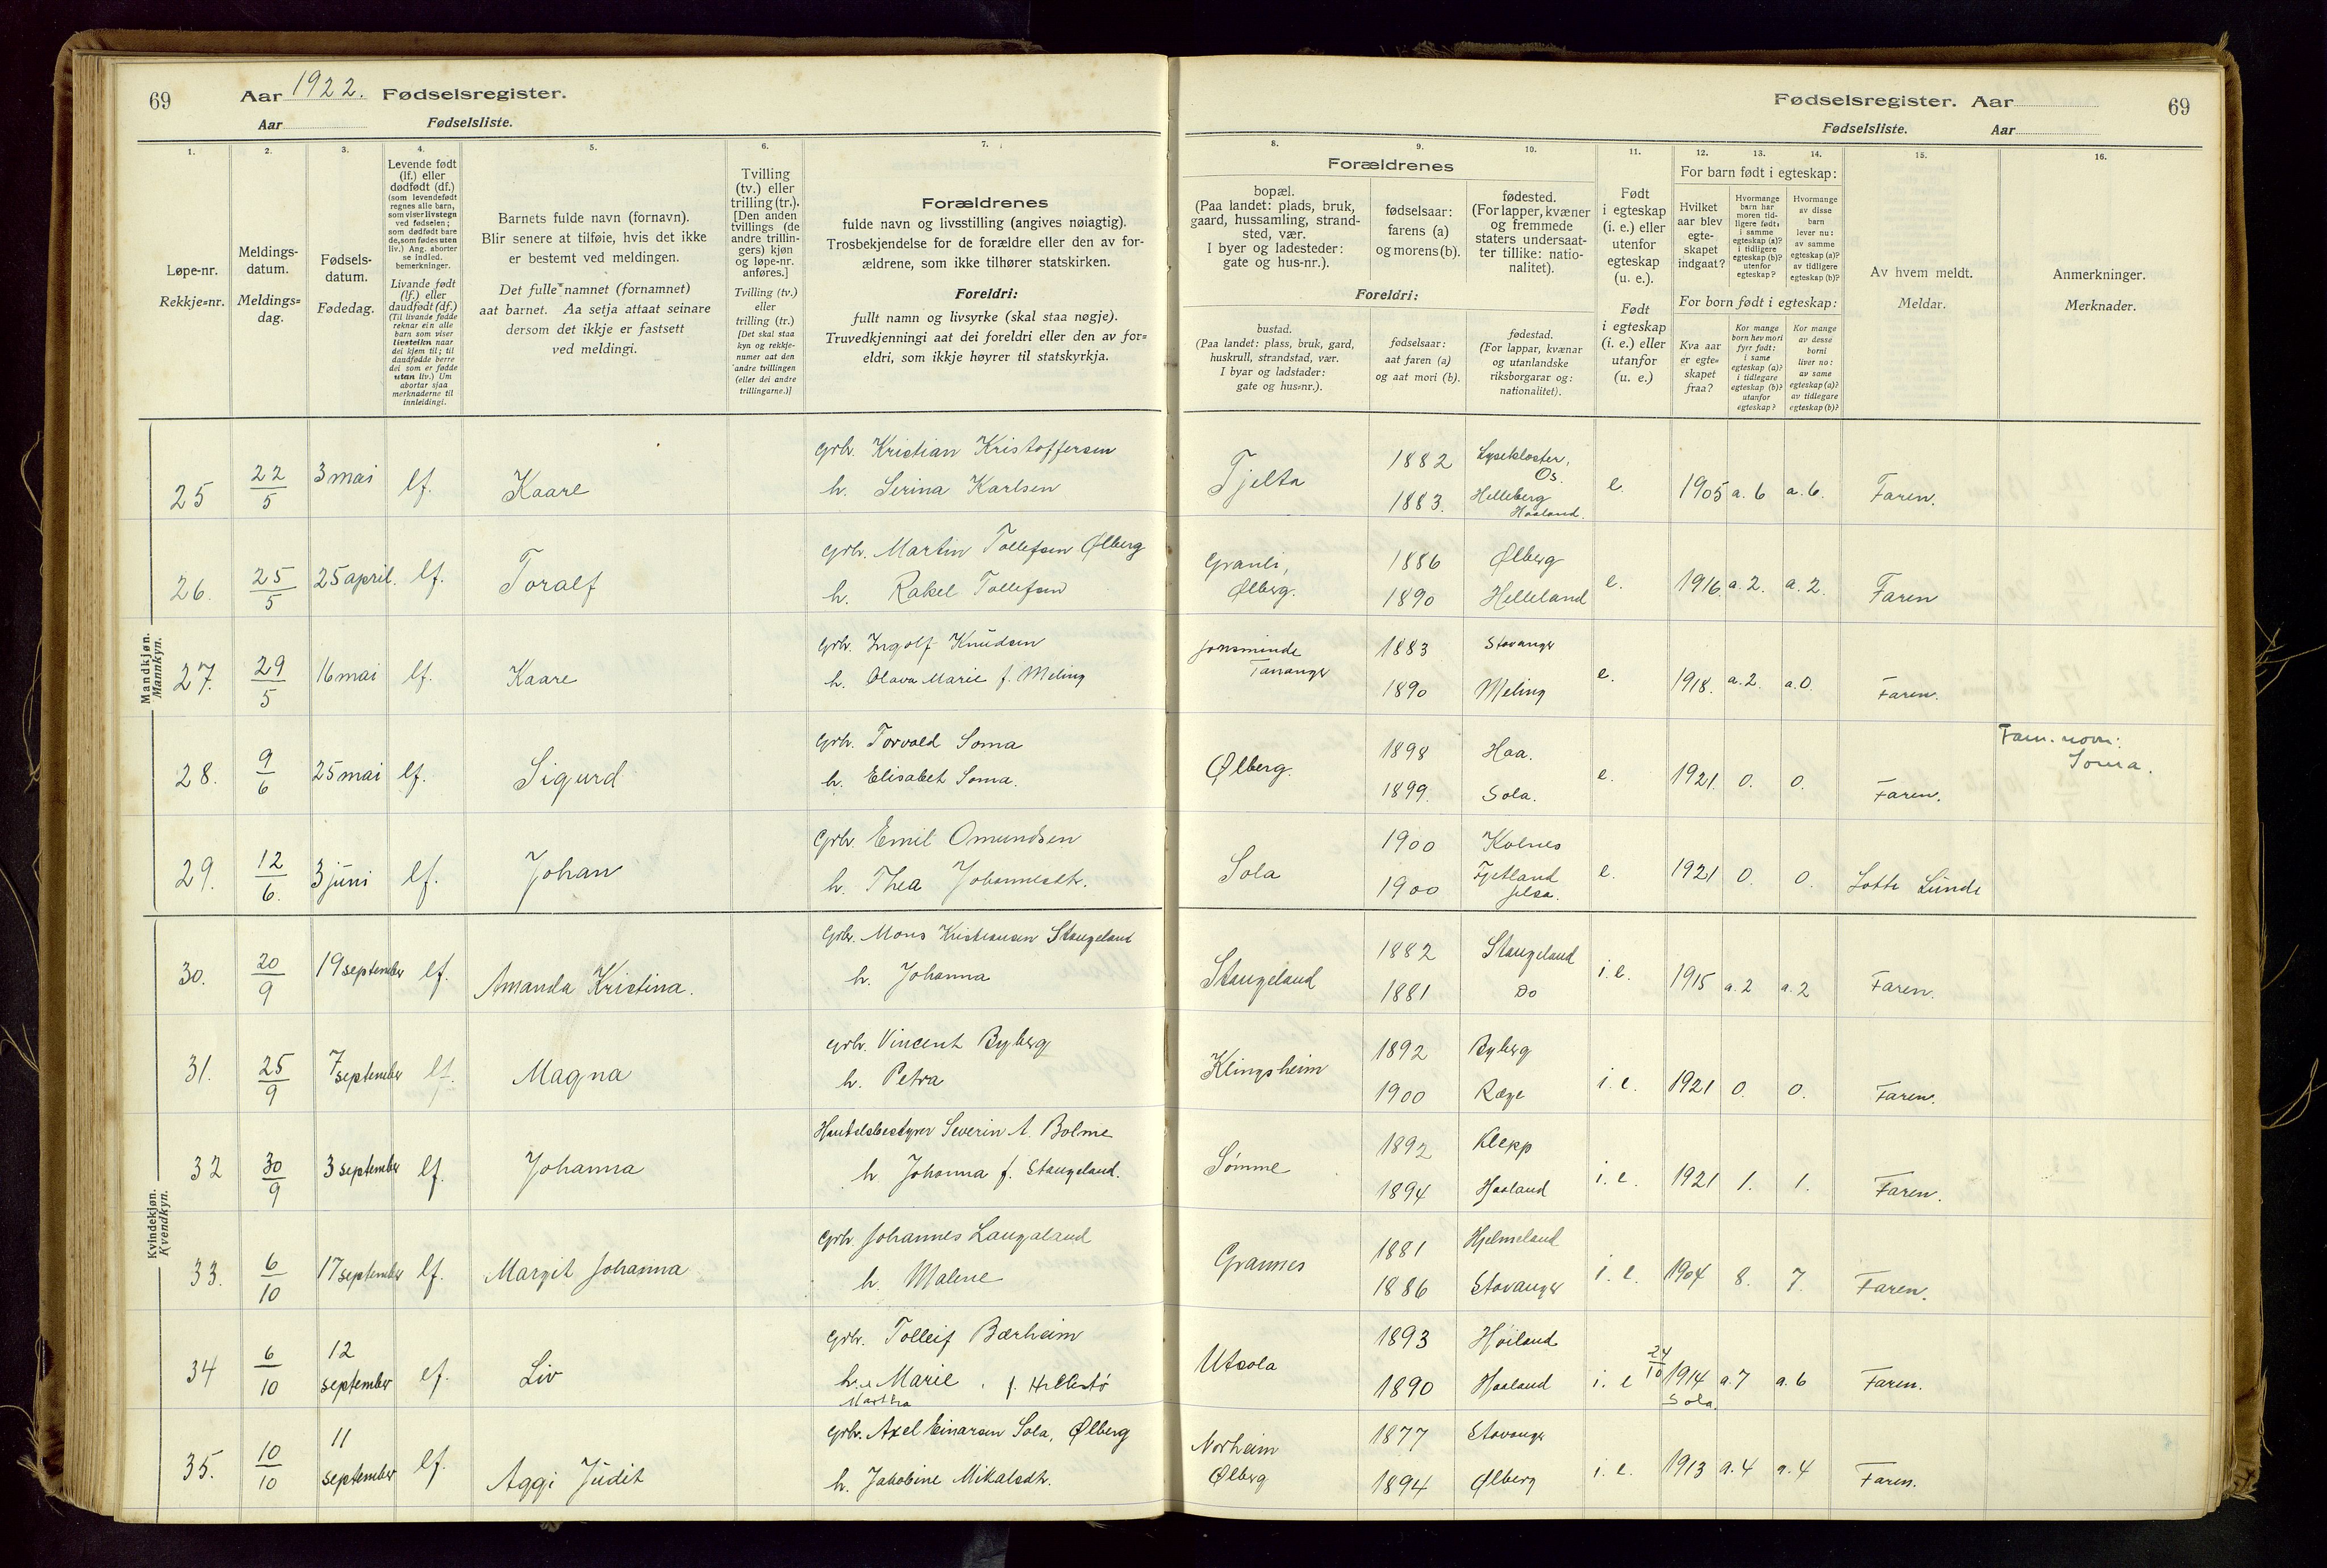 69 Aar 1922. Fødselsregister.
Aar Fødselsliste.
Fødselsregister. Aar 69
Fødselsliste. Aar
1. 2. 3. 4. 5. 6. 7.
Løpe-nr.
Rekkje=nr.
Meldings-
datum.
Meldings=
dag.
Fødsels-
datum.
Fødedag.
Levende født
(lf.) eller
dødfødt (df.)
(som levendefødt
regnes alle barn,
som viser livstegn
ved fødselen;
som dødfødt bare
de, som fødes uten
liv.) Ang. aborter
se indled.
bemerkninger.
Livande født
(lf.) eller
daudfødt (df.)
(Til livande fødde
reknar ein alle
barn som viser
livsteikn naar
dei kjem til; til
daudfødde berre
dei som er fødde
utan liv.) Um
abortar sjaa
merknaderne til
innleidingi.
Barnets fulde navn (fornavn).
Blir senere at tilføie, hvis det ikke
er bestemt ved meldingen.
Det fulle namnet (fornamnet)
aat barnet. Aa setja attaat seinare
dersom det ikkje er fastsett
ved meldingi.
Tvilling
(tv.) eller
trilling (tr.).
[Den anden
tvillings (de
andre trillin-
gers) kjøn
og løpe-nr.
anføres.]
Tvilling (tv.)
eller
trilling (tr.)
[Det skal staa
kyn og rekkje-
numer aat den
andre tvillingen
(eller dei andre
trillingarne.)]
Forældrenes
fulde navn og livsstilling (angives nøiagtig).
Trosbekjendelse for de forældre eller den av for-
ældrene, som ikke tilhører statskirken.
Foreldri:
fullt namn og livsyrke (skal staa nøgje).
Truvedkjenningi aat dei foreldri eller den av for=
eldri, som ikkje høyrer til statskyrkja.
8. 9. 10. 11. 12. 13. 14. 15. 16.
Forældrenes
bopæl.
(Paa landet: plads, bruk,
gaard, hussamling, strand-
sted, vær.
I byer og ladesteder:
gate og hus-nr.).
fødselsaar:
farens (a)
og morens (b).
fødested.
(For lapper, kvæner
og fremmede
staters undersaat-
ter tillike: natio-
nalitet).
Foreldri:
bustad.
(Paa landet: plass, bruk, gard,
huskrull, strandstad, vær.
I byar og ladstader:
gate og hus=nr.).
fødselsaar:
aat faren (a)
og aat mori (b).
fødestad.
(For lappar, kvænar
og utanlandske
riksborgarar og:
nationalitet).
Født
i egteskap
(i. e.) eller
utenfor
egteskap
(u. e.).
Født
i egteskap
(i. e.) eller
utanfor
(u. e.)
For barn født i egteskap:
Hvilket
aar blev
egte-
skapet
indgaat?
Hvormange
barn har
moren tid-
ligere født:
i samme
egteskap (a)?
i tidligere
egteskap (b)?
utenfor
egteskap?
Hvormange
av disse
barn
lever nu:
av samme
egteskap (a)?
av tidligere
egteskap (b)?
For born født i egteskap:
Kva aar
er egte=
skapet
fraa?
Kor mange
born hev mori
fyrr født:
i same
egteskap (a)?
i tidlegare
egteskap (b)?
utanfor
egteskap?
Kor mange
av desse
borni
liver no:
av same
egteskap (a)?
av tidlegare
egteskap (b)?
Av hvem meldt.
Meldar.
Anmerkninger.
Merknader.
Mandkjøn.
Mannkyn.
25 22/5 3 mai lf. Kaare
Grbr. Kristian Kristoffersen
h. Serina Karlsen
Tjelta 1882 Lysekloster, Os.
1883. Helleberg Haaland.
e. 1905 a. 6 a. 6. Faren.
26. 25/5 25 april. lf. Toralf
Grbr. Martin Tollefsen Ølberg
h. Rakel Tollefsen
Granli, Ølberg. 1886 Ølberg
1890 Helleland
e. 1916. a. 2. a. 2. Faren
27. 29/5 16 mai lf. Kaare
Grbr. Ingolf Knudsen
h. Olava Marie f. Meling
Jonsminde Tananger 1883 Stavanger
1890 Meling
e. 1918. a. 2. a. 0. Faren.
28. 9/6 25 mai lf. Sigurd
Grbr. Torvald Soma
h. Elisabet Soma.
Ølberg. 1898 Haa.
1899. Sola.
e. 1921. 0. 0. Faren.
Fam. navn:
Soma.
29. 12/6. 3 juni lf. Johan
Grbr. Emil Omundsen
h. Thea Johannesdtr.
Sola 1900 Kolnes
1900 Fjetland Jelsa.
e. 1921 0. 0. Lotte Lunde
Kvindekjøn.
Kvendkyn.
30. 20/9 19 september lf. Amanda Kristina.
Grbr. Mons Kristiansen Stangeland
h. Johanna
Stangeland 1882 Stangeland
1881 Do
i. e. 1915 a. 2 a. 2 Faren.
31. 25/9 7 september lf. Magna
Grbr. Vincent Byberg
h. Petra
Klingsheim 1892 Byberg
1900 Ræge
i. e. 1921 0. 0. Faren.
32 30/9 3 september lf. Johanna
Handelsbestyrer Severin A. Bolme
h. Johanna f. Stangeland.
Sømme 1892 Klepp
1894 Haaland
i. e. 1921 1. 1. Faren.
33. 6/10 17 september lf. Margit Johanna
Grbr Johannes Langaland
h. Malene
Grannes 1881 Hjelmeland
1886 Stavanger
i. e. 1904 8. 7. Faren.
34 6/10 12 september lf. Liv
Grbr. Tolleif Bærheim
h. Marie Martha f. Hellestø
Utsola 1893 Høiland
1890 Haaland
i. e 24/10 1914 Sola. a. 7 a. 6 Faren.
35. 10/10 11 september lf. Aggi Judit
Grbr. Axel Einarsen Sola, Ølberg
h. Jakobine Mikalsdtr.
Norheim Ølberg 1877 Stavanger
1894 Ølberg
i. e. 1913 a. 4 a. 4 Faren.